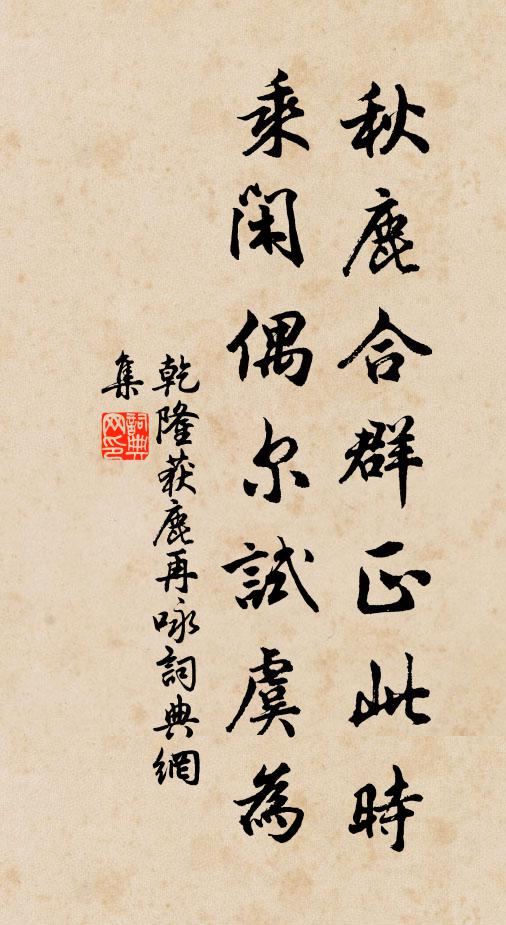 秋鹿合群正此時
乘閑偶尔試虞為
乾隆获鹿再咏詞典網
集
詞典
网印